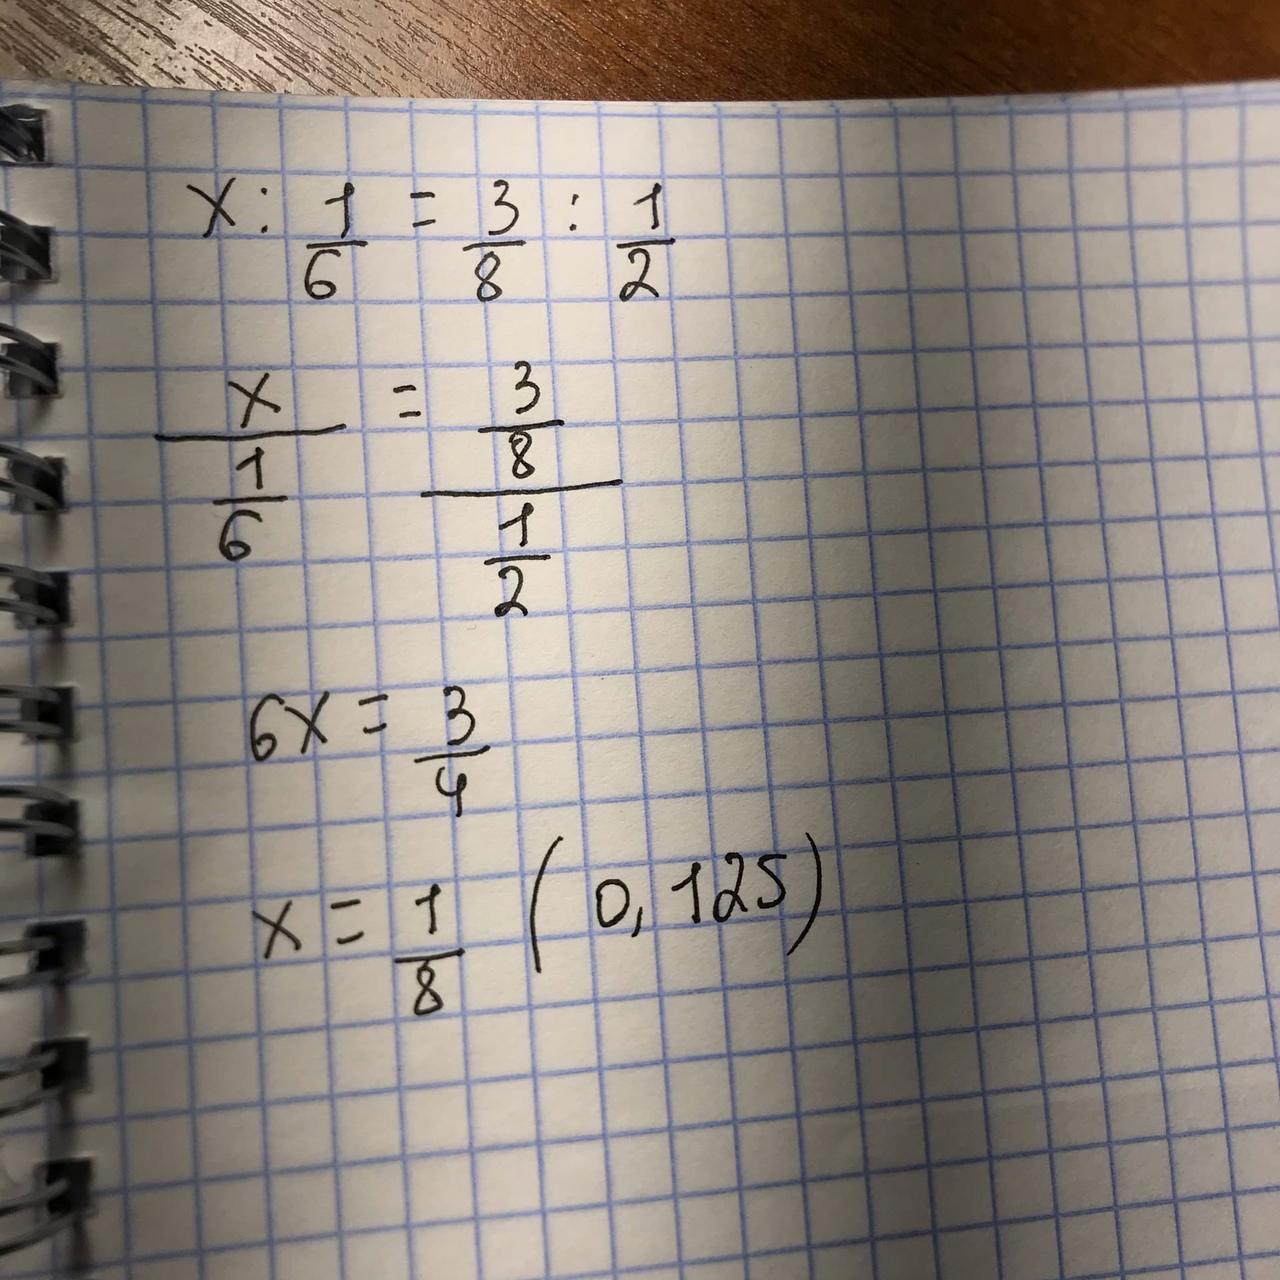 x : 1/6 = 3/8 : 1/2
x/(1/6) = (3/8)/(1/2)
6x = 3/4
x = 1/8 (0,125)